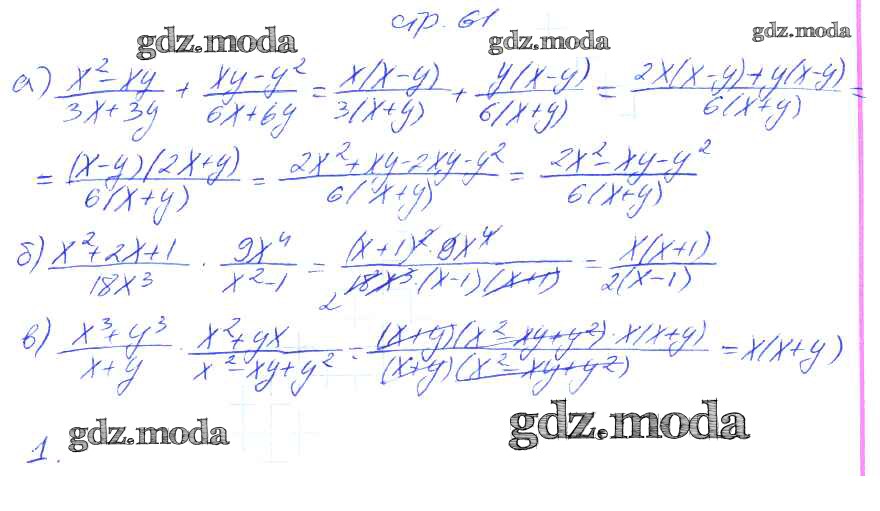 стр. 61
gdz.moda gdz.moda gdz.moda
а) (x² - xy)/(3x + 3y) + (xy - y²)/(6x + 6y) = x(x - y)/3(x + y) + y(x - y)/6(x + y) = (2x(x - y) + y(x - y))/6(x + y) =
= (x - y)(2x + y)/6(x + y) = (2x² + xy - 2xy - y²)/6(x + y) = (2x² - xy - y²)/6(x + y)
б) (x² + 2x + 1)/18x³ · 9x⁴/(x² - 1) = (x + 1)² · 9x⁴/2 18x³ · (x - 1)(x + 1) = x(x + 1)/2(x - 1)
в) (x³ + y³)/(x + y) · (x² + yx)/(x² - xy + y²) = (x + y)(x² - xy + y²) · x(x + y)/(x + y)(x² - xy + y²) = x(x + y)
gdz.moda gdz.moda
1.